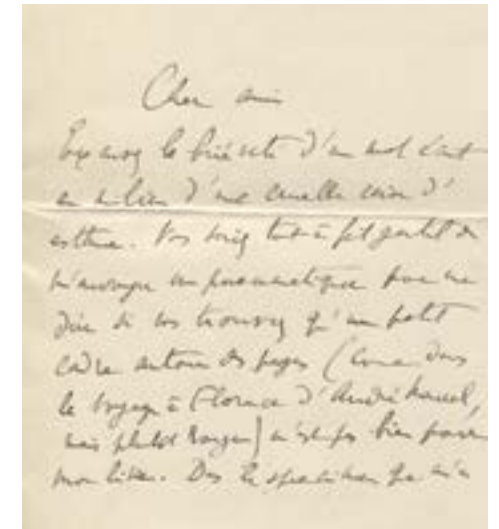 Cher ami
Excusez la brièveté d'un mot écrit
au milieu d'une cruelle crise d'
asthme. Vous seriez tout à fait gentil de
m'envoyer un pneumatique pour me
dire si vous trouvez qu'un petit
cadre autour des pages (comme dans
le Voyage à Florence d'André
mais plutôt rouge) n'est pas bien pour
mon livre. Dans le spécimen qu'on m'a